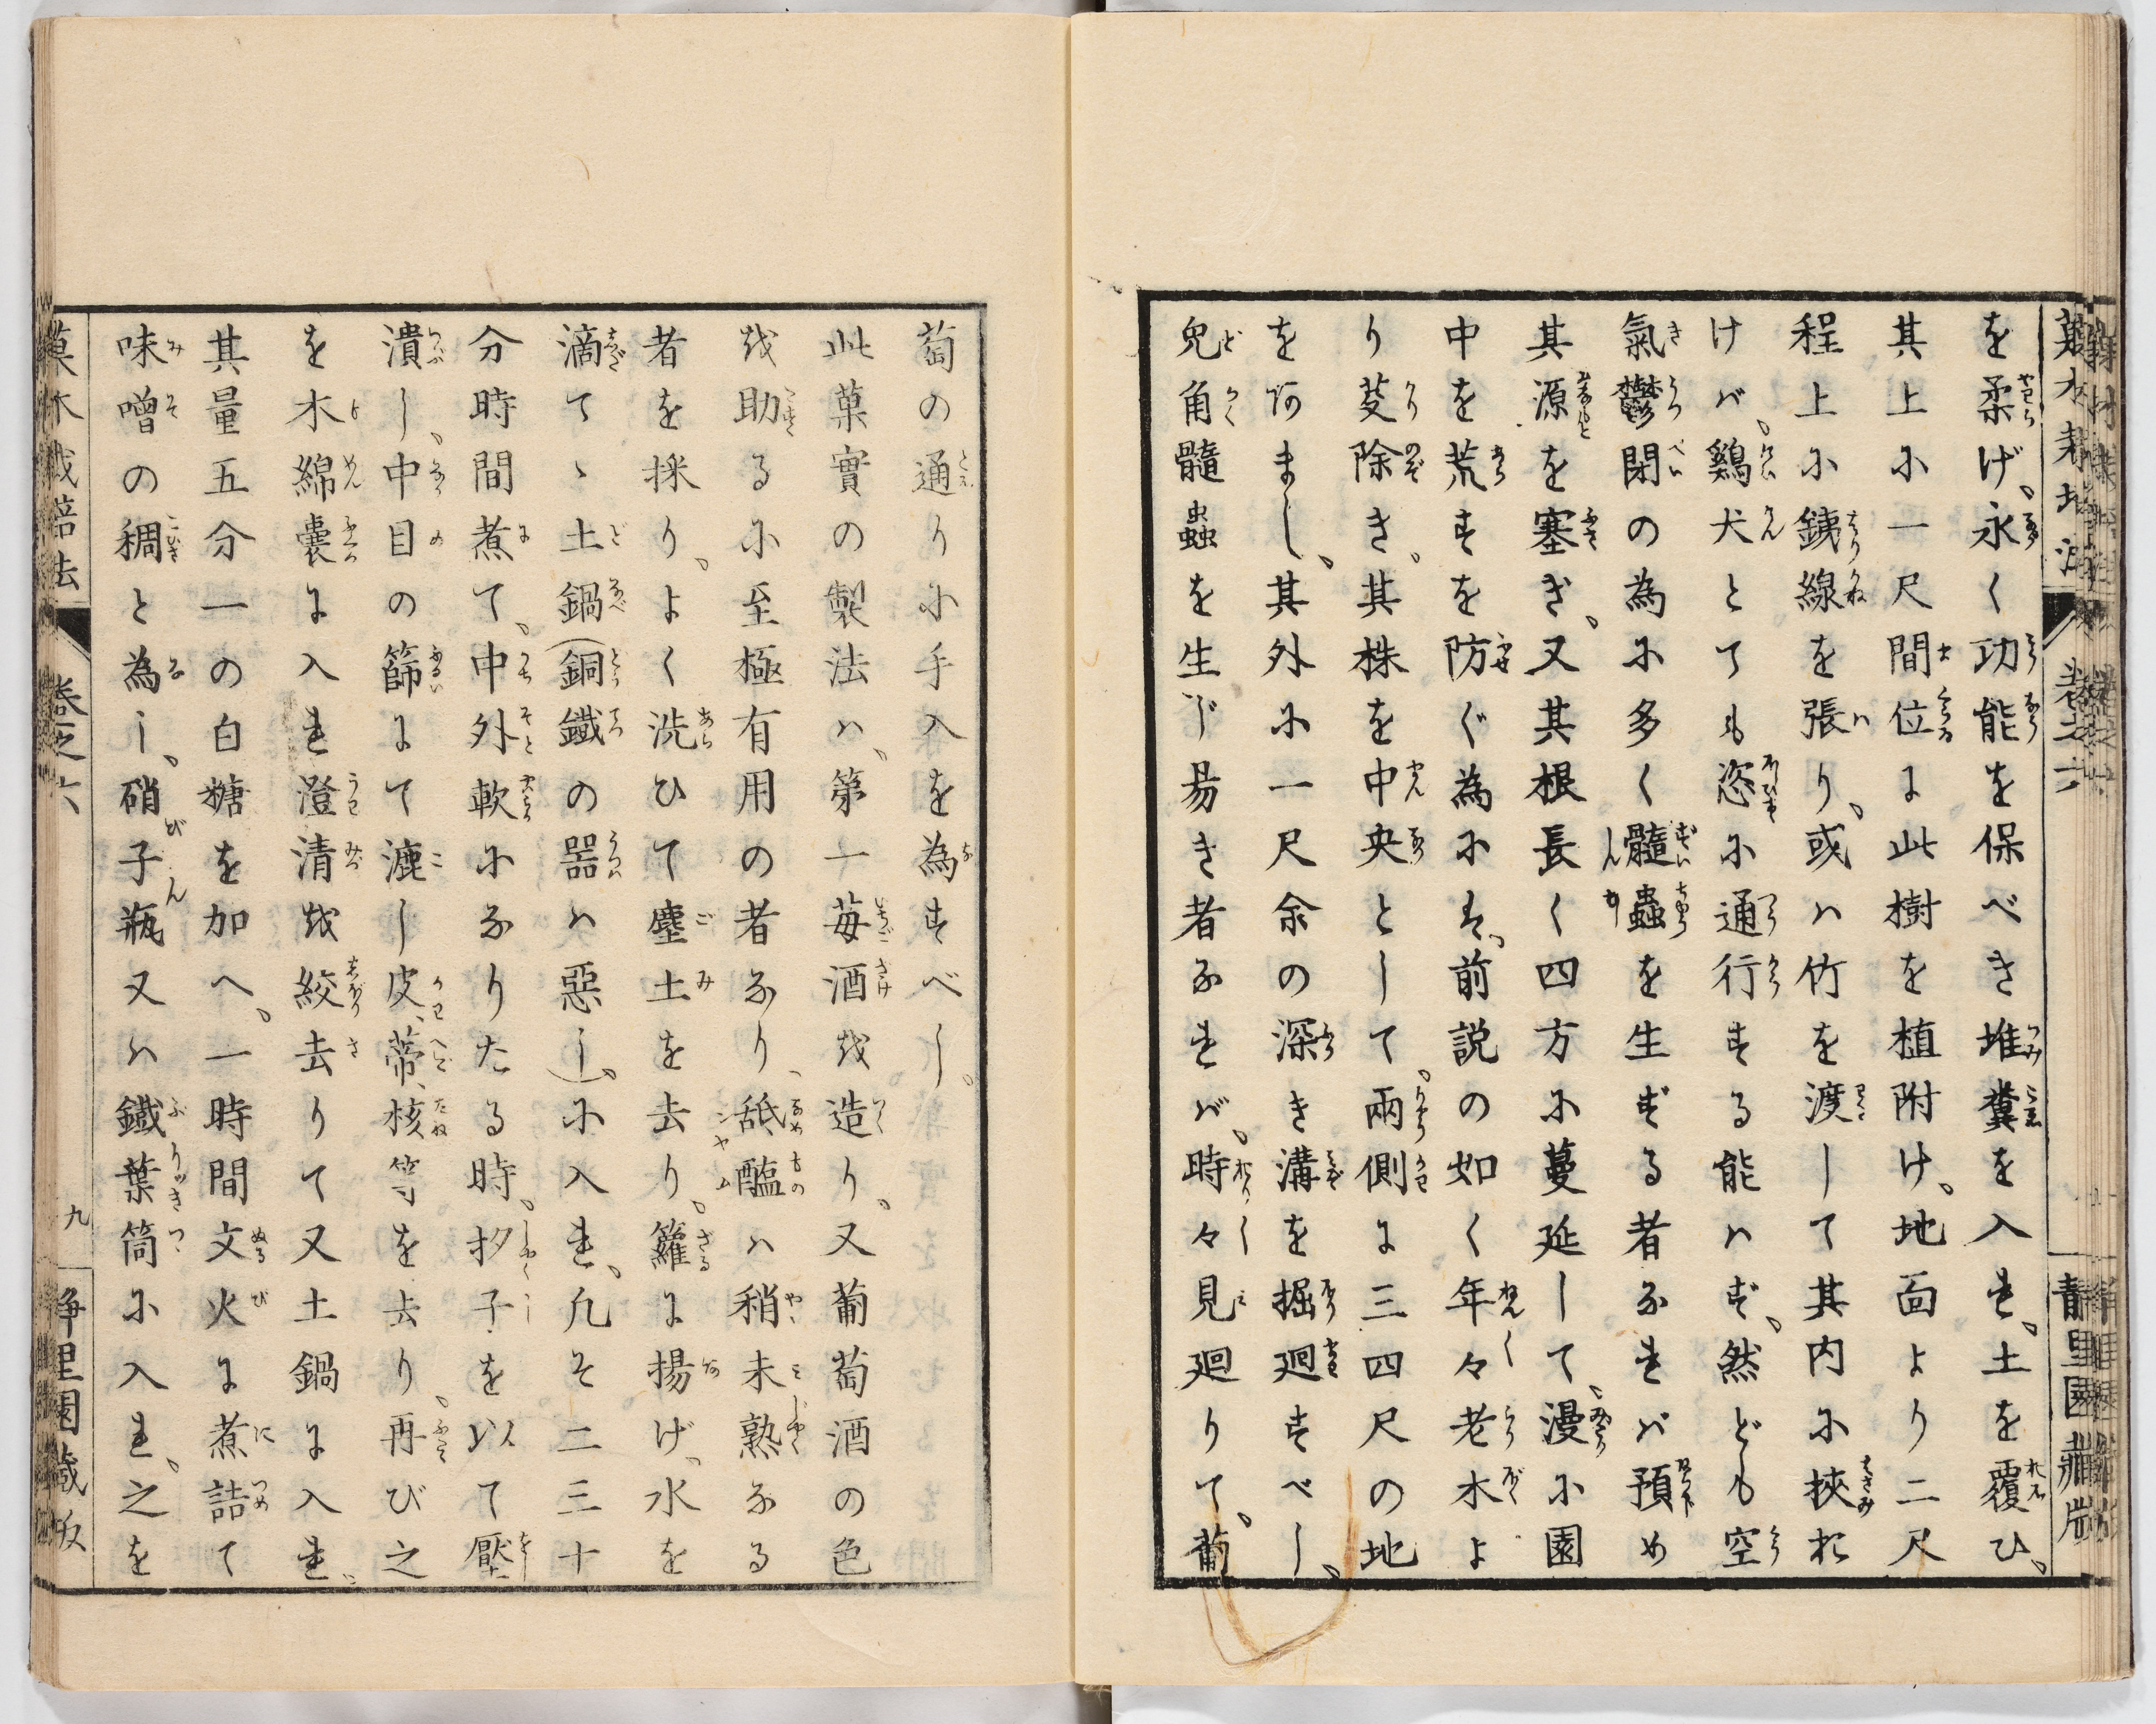 を柔げ、永く功能を保べき堆糞を入れ、土を覆ひ、
其上に一尺間位に此樹を植附け、地面より二尺
程上に銕線を張り、或ハ竹を渡して其内に挾お
けバ、鷄犬とても恣に通行する能ハず、然ども空
氣鬱閉の為に多く髓蟲を生ずる者なれバ預め
其源を塞ぎ、又其根長く四方に蔓延して、漫に園
中を荒すを防ぐ為にハ、前説の如く年々老木よ
り芟除き。其株を中央として、兩側に三四尺の地
を阿まし、其外に一尺余の深き溝を掘廻すべし、
兎角髓蟲を生じ昜き者なれバ、時々見廻りて、葡
萄の通りに手入を為すべし。
此菓實の製法ハ、第一苺酒を造り、又葡萄酒の色
を助るに至極有用の者なり、舐醢ハ稍未熟なる
者を採り、よく洗ひて塵土を去り、籮に揚げ、水を
滴てゝ土鍋(銅鐵の器ハ惡し)に入れ、凡そ二三十
分時間煮て、中外軟になりたる時、杓子を以て壓
潰し、中目の篩にて漉し皮、蒂、核等を去り、再び之
を木綿嚢に入れ澄清を絞去りて又土鍋に入れ
其量五分一の白糖を加へ、一時間文火に煮詰て
味噌の稠と為し、硝子瓶又ハ鐵葉筒に入れ、之を
菓木栽培法 卷之六 九 靜里園藏版